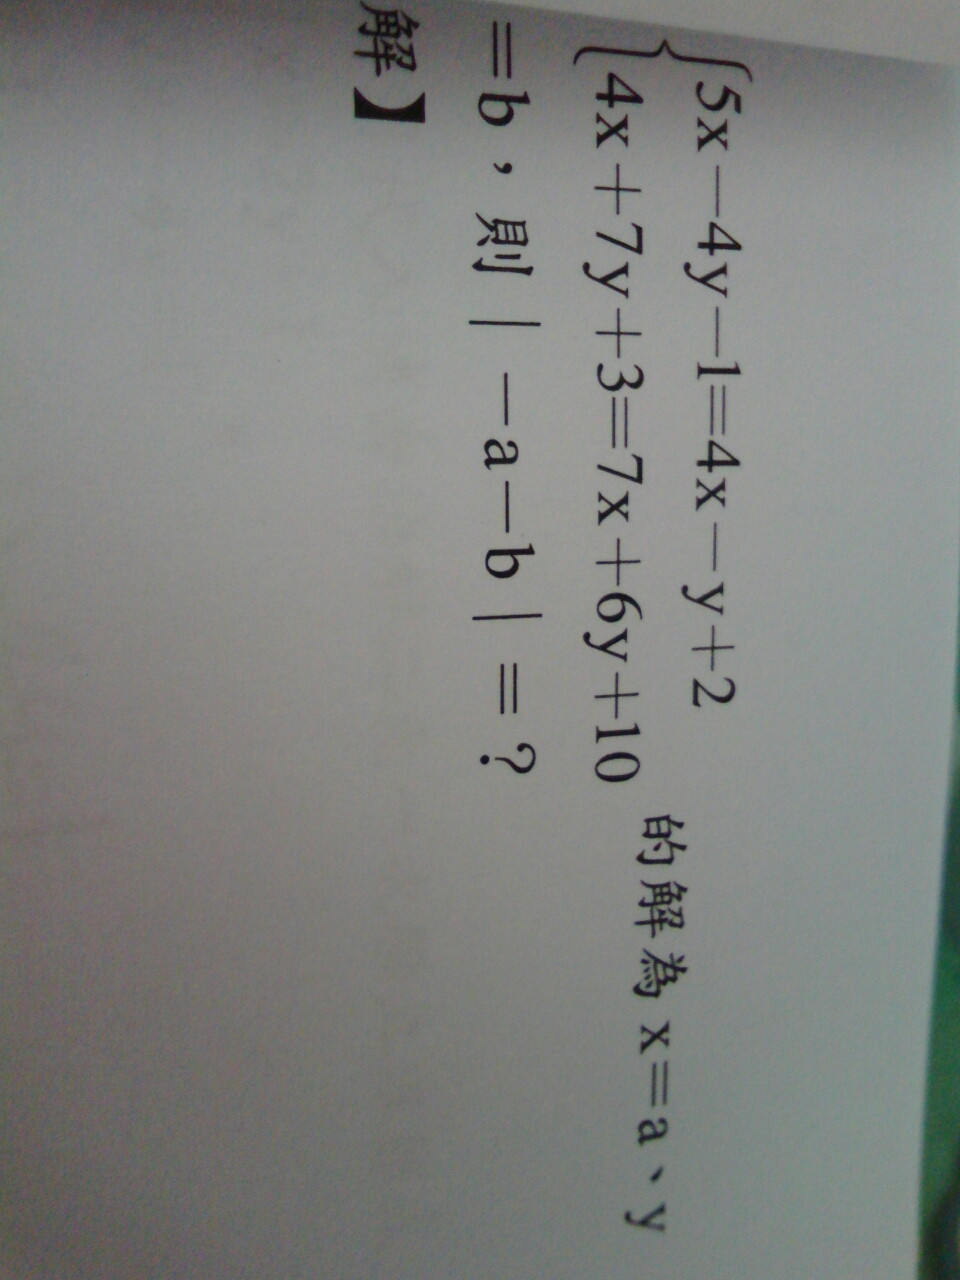 5x－4y－1=4x－y＋2
4x＋7y＋3=7x＋6y＋10
的解為 x＝a、y
＝b，則｜－a－b｜＝？
解】